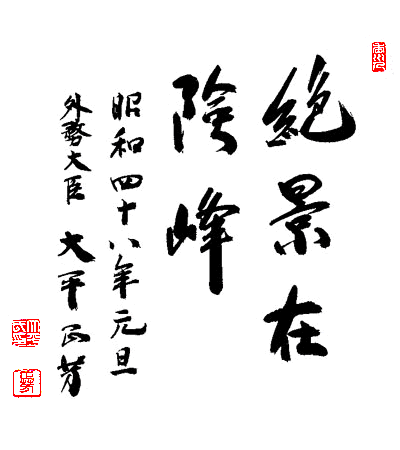 絶景在
険峰
昭和四十八年元旦
外務大臣 大平正芳